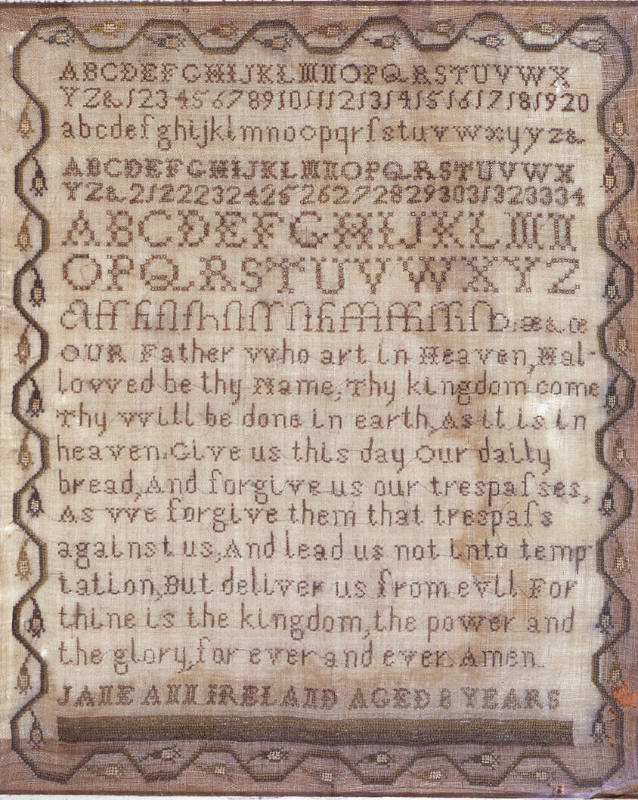 ABCDEFGHIJKLMNOPQRSTUVWX
YZ&1234567891011121314151617181920
abcdefghijklmnoopqrſstuvwxyyz&
ABCDEFGHIJKLMNOPQRSTUVWX
YZ&21222324252627282930313233 34
ABCDEFGHIJKLMN
OPQRSTUVWXYZ
æ&œ
OUR Father vvho art in Heaven, Hal-
lovved be thy Name, Thy kingdom come
Thy vvill be done in earth, As it is in
heaven. Give us this day Our daily
bread, And forgive us our trespaſses,
As vve forgive them that treſpaſs
against us, And lead us not into temp
tation, But deliver us from evil For
thine is the kingdom, the power and
the glory, for ever and ever. Amen.
JANE ANN IRELAND AGED 8 YEARS